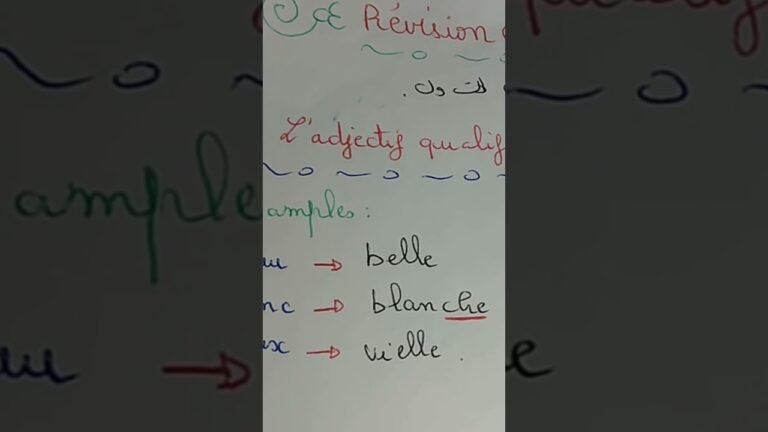 Révision
L'adjectif qualif
amples :
u → belle
nc → blanche
ux → vielle .